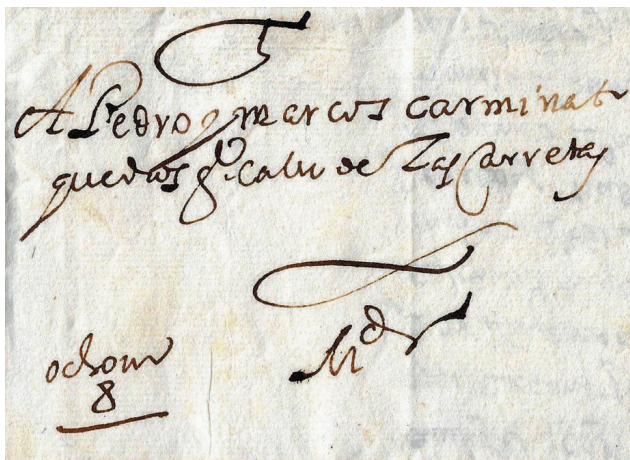 A Pedro y marcos Carminat
que dios g.^de calle de Las Carretas
M^d
8